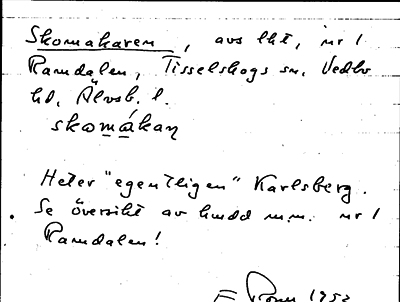 Skomakaren, avs lht, nr 1
Ramdalen, Tisselskogs sn, Vedbo
hd, Älvsb. l.
skomákaɳ
Heter "egentligen" Karlsberg.
Se översikt av hmdd m.m. nr 1
Ramdalen!
1953